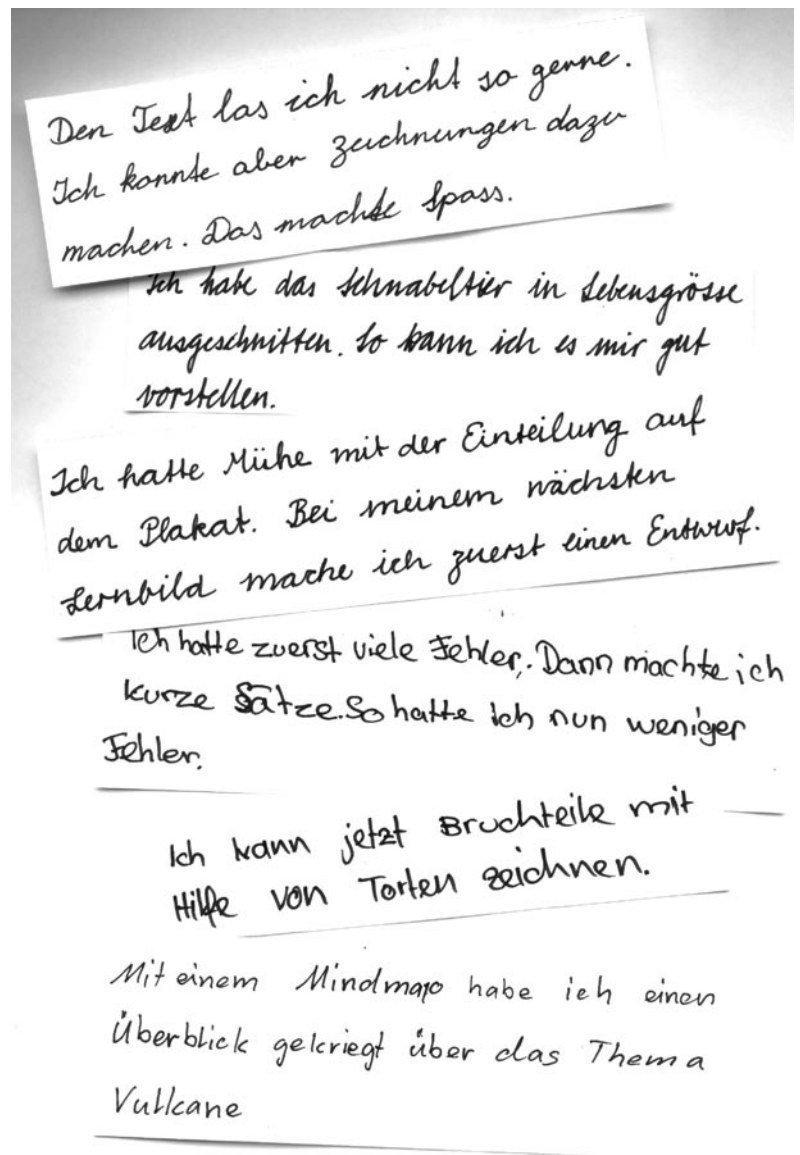 Den Text las ich nicht so gerne.
Ich konnte aber Zeichnungen dazu
machen. Das machte Spass.
Ich habe das Schnabeltier in Lebensgrösse
ausgeschnitten. So kann ich es mir gut
vorstellen.
Ich hatte Mühe mit der Einteilung auf
dem Plakat. Bei meinem nächsten
Lernbild mache ich zuerst einen Entwurf.
Ich hatte zuerst viele Fehler. Dann machte ich
kurze Sätze. So hatte ich nun weniger
Fehler.
Ich kann jetzt Bruchteile mit
Hilfe von Torten zeichnen.
Mit einem Mindmap habe ich einen
Überblick gekriegt über das Thema
Vulkane